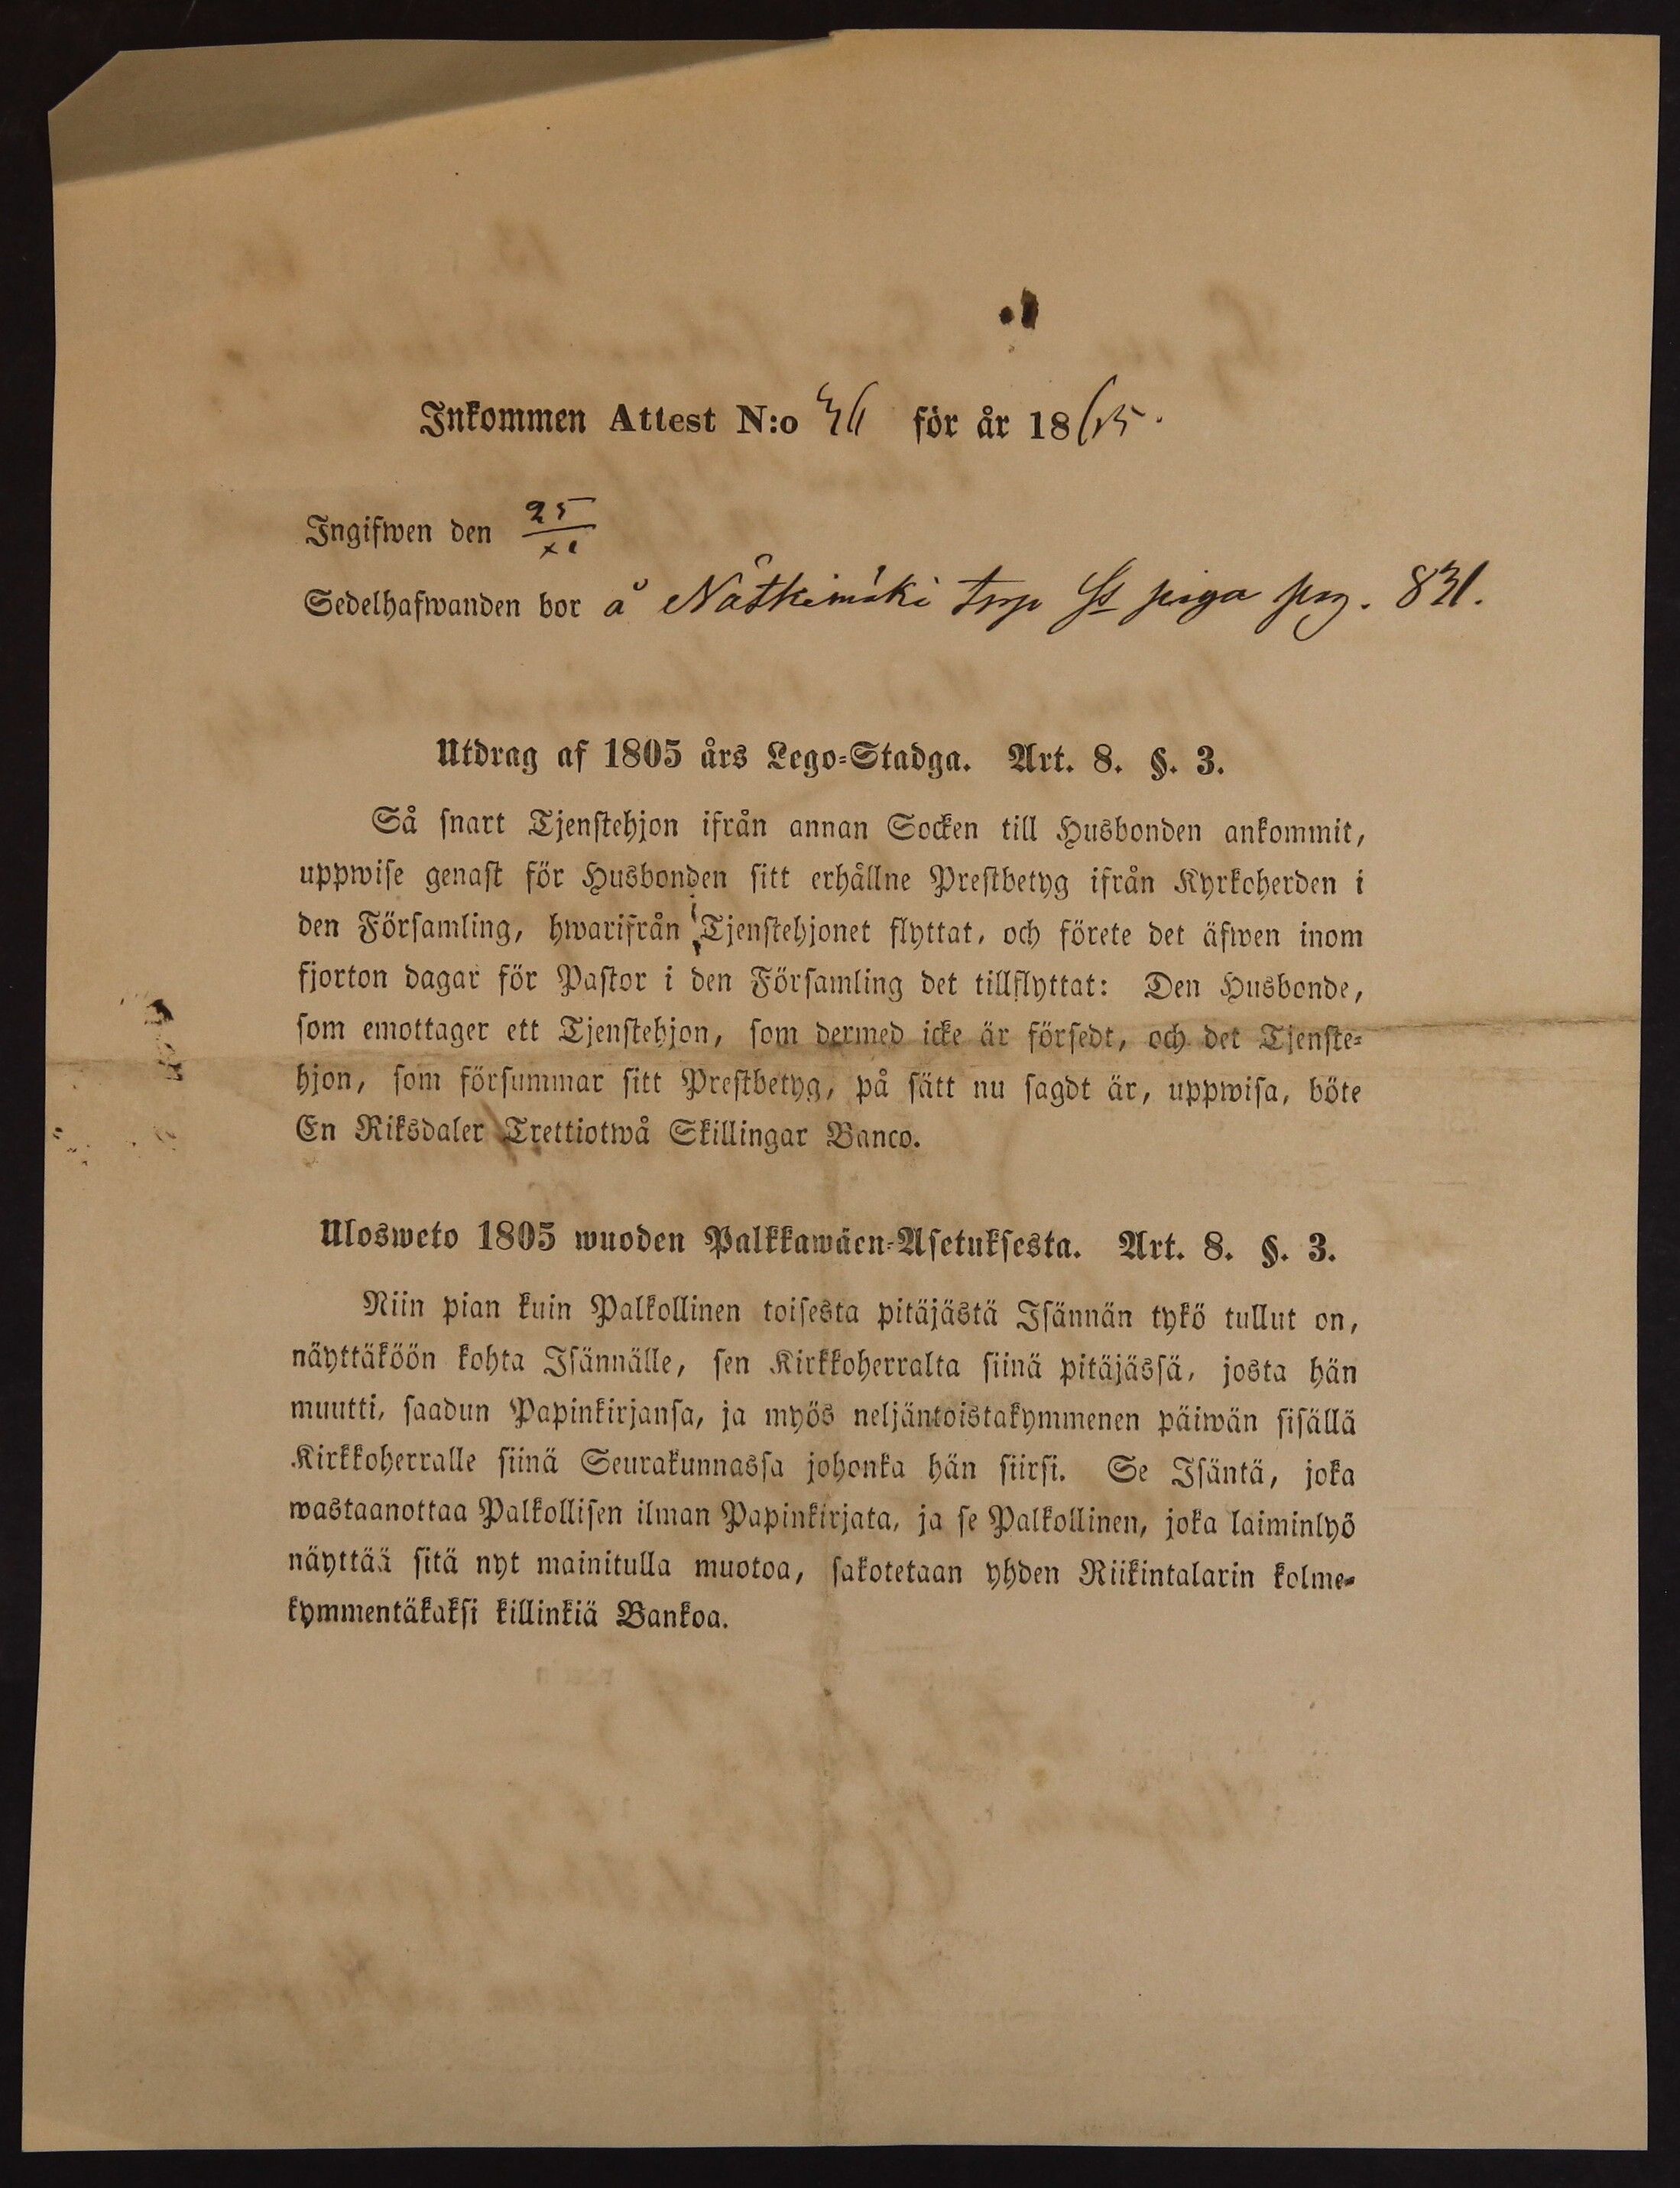 Inkommen Attest N:o 36 för år 1865.
Ingifwen den 25/XI
Sedelhafwanden bor å Nätkimäki torp ss piga pag. 831.
Utdrag af 1805 års Lego=Stadga. Art. 8. §. 3.
Så snart Tjenstehjon ifrån annan Socken till Husbonden ankommit,
uppwise genast för Husbonden sitt erhållne Prestbetyg ifrån Kyrkoherden i
den Församling, hwarifrån Tjenstehjonet flyttat, och förete det äfwen inom
fjorton dagar för Pastor i den Församling det tillflyttat: Den Husbonde,
som emottager ett Tjenstehjon, som dermed icke är försedt, och det Tjenste=
hjon, som försummar sitt Prestbetyg, på sätt nu sagdt är, uppwisa, böte
En Riksdaler Trettiotwå Skillingar Banco.
Ulosweto 1805 wuoden Palkkawäen=Asetuksesta. Art. 8. §. 3.
Niin pian kuin Palkollinen toisesta pitäjästä Isännän tykö tullut on,
näyttäköön kohta Isännälle, sen Kirkkoherralta siinä pitäjässä, josta hän
muutti, saadun Papinkirjansa, ja myös neljäntoistakymmenen päiwän sisällä
Kirkkoherralle siinä Seurakunnassa johonka hän siirsi. Se Isäntä, joka
wastaanottaa Palkollisen ilman Papinkirjata, ja se Palkollinen, joka laiminlyö
näyttää sitä nyt mainitulla muotoa, sakotetaan yhden Riikintalarin kolme=
kymmentäkaksi killinkiä Bankoa.